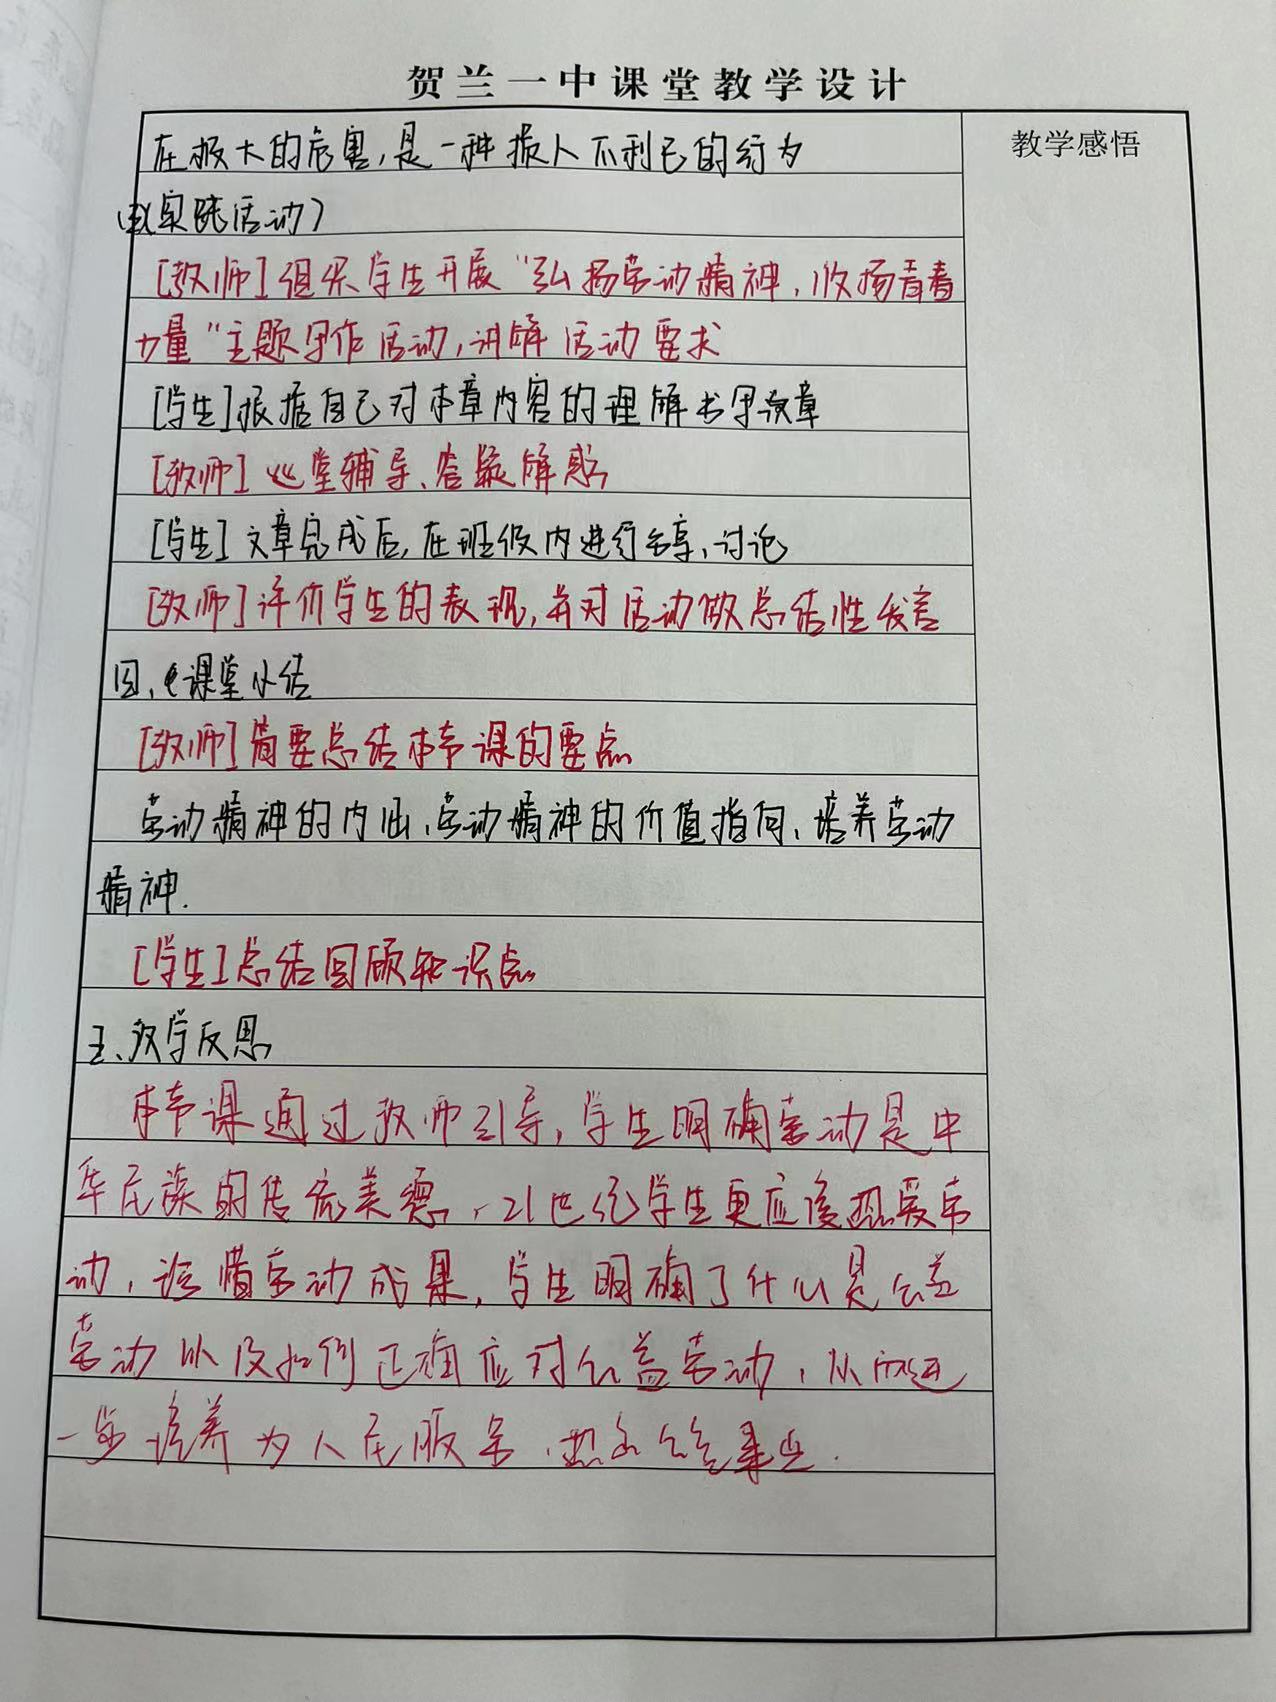 贺兰一中课堂教学设计
教学感悟
在极大的危害,是一种损人不利己的行为
实践活动)
[教师]组织学生开展“弘扬劳动精神、收扬青春
力量”主题写作活动,讲解活动要求
[学生]根据自己对本章内容的理解书写文章
[教师]巡堂辅导、答疑解惑
[学生]文章完成后,在班级内进行分享、讨论
[教师]评价学生的表现,并对活动做总结性发言
四、课堂小结
[教师]简要总结本节课的要点
劳动精神的内涵、劳动精神的价值指向、培养劳动
精神.
[学生]总结回顾知识点
五、教学反思
本节课通过教师引导,学生明确劳动是中
华民族的传统美德,21世纪学生更应该热爱劳
动,珍惜劳动成果,学生明确了什么是公益
劳动以及如何正确应对公益劳动,从而进
一步培养为人民服务、热心公益事业.